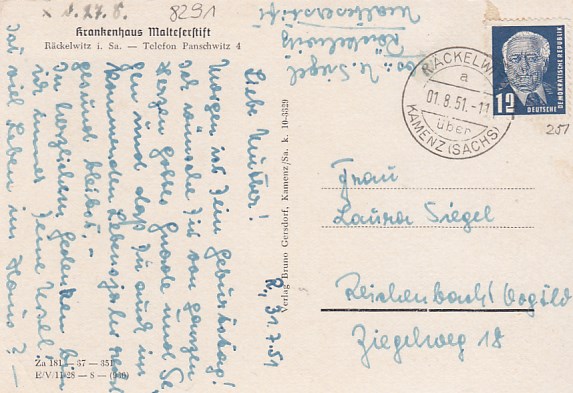 8291
Krankenhaus Malteserstift
Räckelwitz i. Sa. — Telefon Panschwitz 4
R., 31.7.51
Liebe Mutter!
Morgen ist dein Geburtstag!
Da wünsche ich dir von ganzem
Herzen Gottes Gnade und Se-
gen und daß du auch im
kommenden Lebensjahr recht
gesund bleibst. –
In herzlichem Gedenken bin
ich immer deine Ursel.
Ist viel Leben im Haus? –
Za 181 — 37 — 351
E/V/11-28 — 8 — (936)
Verlag Bruno Gersdorf, Kamenz/Sa. k. 10-3329
Abs: U. Siegel
Räckelwitz
Malteserstift
RÄCKELWITZ
a
01.8.51.-11
über
KAMENZ (SACHS)
12
DEUTSCHE
DEUTSCHE DEMOKRATISCHE REPUBLIK
251
Frau
Laura Siegel
Reichenbach/Vogtld
Ziegelweg 18